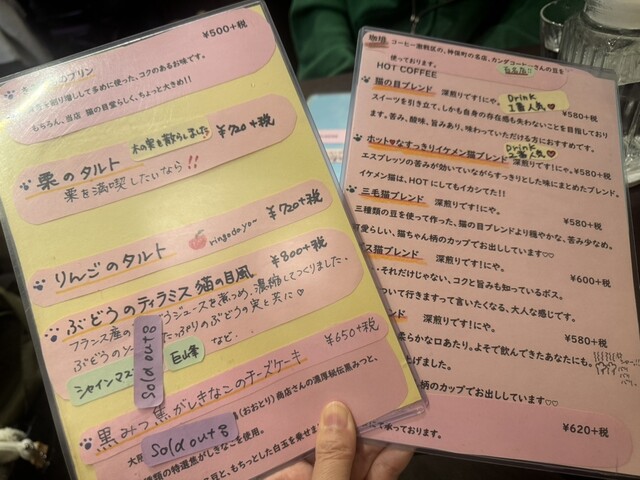 のプリン
¥500+税
割り増しして多めに使った、コクのあるお味です。
もちろん、当店 猫の目堂らしく、ちょっと大きめ!!
栗のタルト
木の実を散らしました
¥720+税
栗を満喫したいなら!!
りんごのタルト
ringodayo~
¥720+税
ぶどうのティラミス猫の目風
¥800+税
フランス産の
うジュースを煮つめ、濃縮してつくりました。
ぶどうの
たっぷりのぶどうの実と共に♡
シャインマス
巨山峯
など・・
Sold out
¥650+税
黒みつ焦がしきなこのチーズケーキ
Sold out
(おおとり)商店さんの濃厚秘伝黒みつと、
種類の特選焦がしきなこを使用。
豆と、もちっとした白玉を乗せま
珈琲 コーヒー激戦区の、神保町の名店、カンダコーヒーさんの豆を
使っております。
HOT COFFEE
猫の目ブレンド 深煎りです!にゃ。
Drink
1番人気♡
¥580+税
スイーツを引き立て、しかも自身の存在感も失わないことを目指しております。
苦み、酸味、旨みあり、味わっていただける方におすすめです。
ホット♥なすっきりイケメン猫ブレンド
Drink
2番人気♡
深煎りです!にゃ。¥580+税
エスプレッソの苦みが効いていながらすっきりとした味にまとめたブレンド。
イケメン猫は、HOTにしてもイカシてた!!
三毛猫ブレンド 深煎りです!にゃ。
¥580+税
三種類の豆を使って作った、猫の目ブレンドより穏やかな、苦み少なめ。
可愛らしい、猫ちゃん柄のカップでお出ししています♡♡
ス猫ブレンド 深煎りです!にゃ。
¥600+税
それだけじゃない、コクと旨みも知っているボス。
ついて行きますって言いたくなる、大人な感じです。
ド 深煎りです!にゃ。
¥580+税
柔らかな口あたり。よそで飲んできたあなたにも。
上げました。
柄のカップでお出ししています♡♡
¥620+税
て作っております。